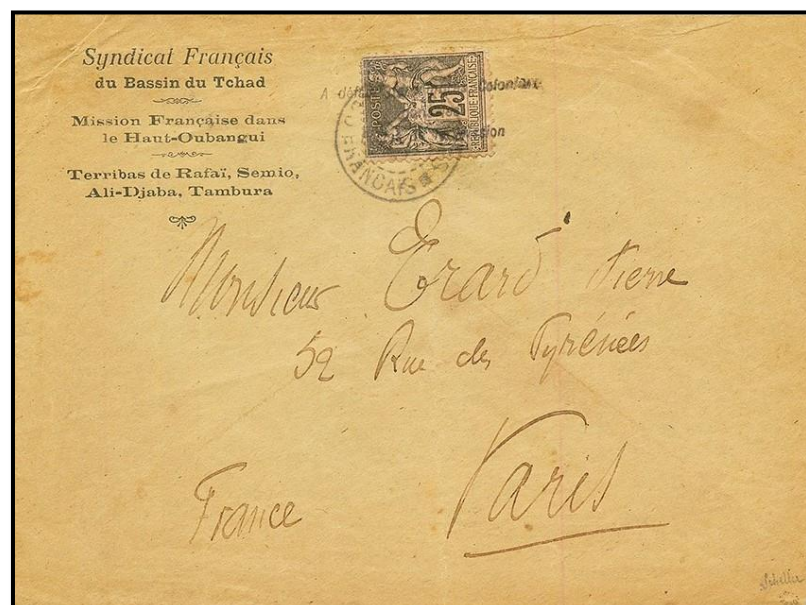 Syndicat Français
du Bassin du Tchad
Mission Française dans
le Haut-Oubangui
Terribas de Rafaï, Semio,
Ali-Djaba, Tambura
A défa
Coloniaux
POSTES
25
REPUBLIQUE FRANÇAISE
FRANCAIS
Monsieur Erard Pierre
52 Rue des Pyrénées
Paris
France